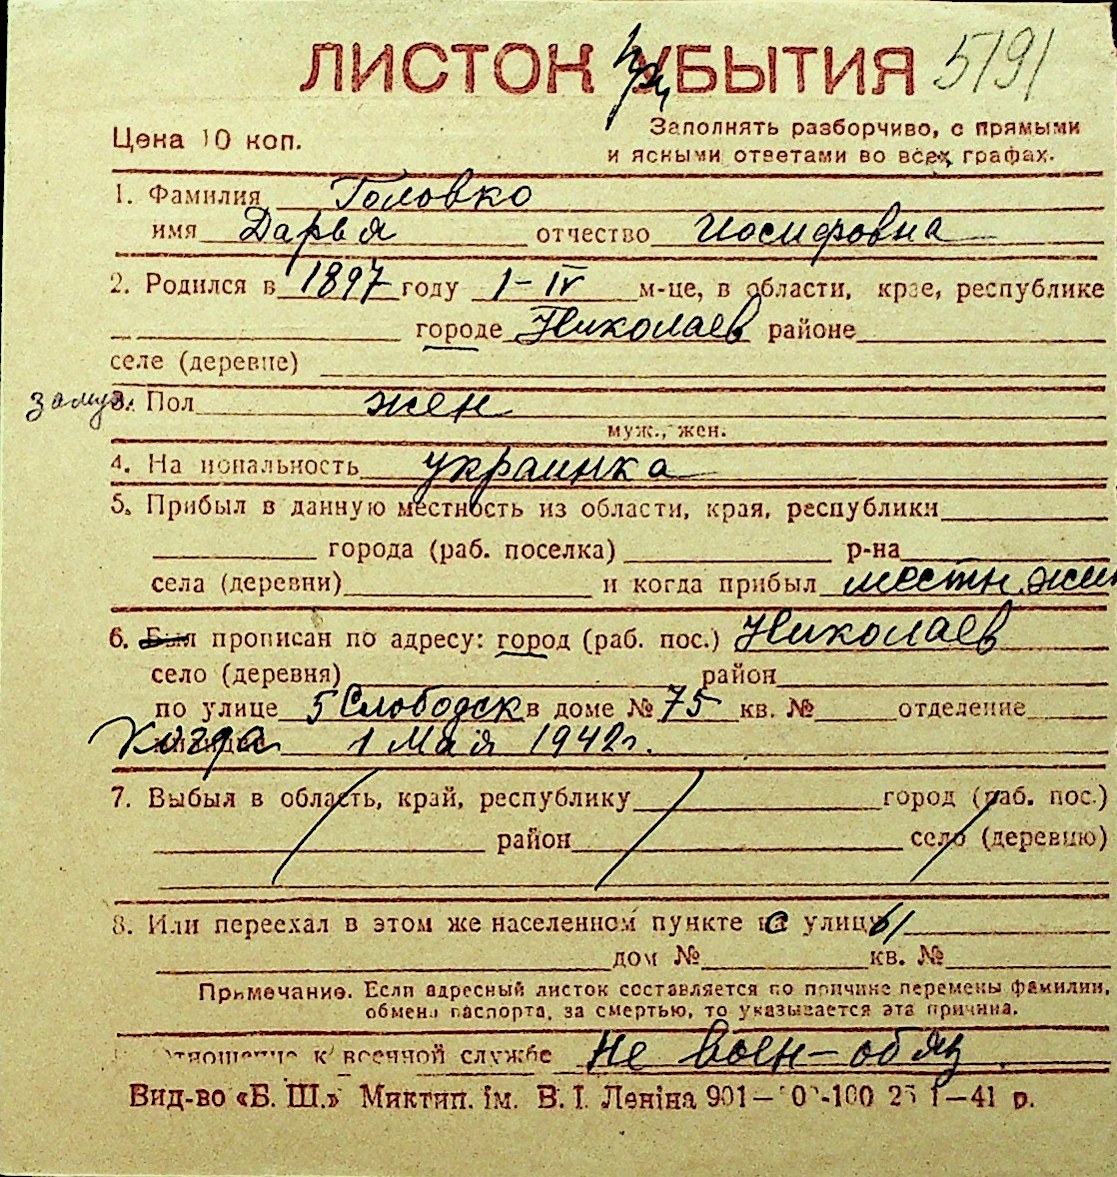 ЛИСТОК УБЫТИЯ 5191
при
Цена 10 коп.
Заполнять разборчиво, с прямыми
и ясными ответами во всех графах.
1. Фамилия Головко
имя Дарья отчество Иосифовна
2. Родился в 1897 году 1-IV м-це, в области, крае, республике
городе Николаев районе
селе (деревне)
замуж. 3. Пол жен
муж., жен.
4. На иональность украинка
5. Прибыл в данную местность из области, края, республики
города (раб. поселка) р-на
села (деревни) и когда прибыл местн. жит
6. Был прописан по адресу: город (раб. пос.) Николаев
село (деревня) район
по улице 5 Слободск в доме № 75 кв. № отделение
Когда 1 Мая 1942 г.
7. Выбыл в область, край, республику город (раб. пос.)
район село (деревню)
8. Или переехал в этом же населенном пункте с улицы
дом № кв. №
Примечание. Если адресный листок составляется по причине перемены фамилии,
обмена паспорта, за смертью, то указывается эта причина.
Отношение к военной службе Не воен-обяз.
Вид-во «Б. Ш.» Миктип. ім. В. І. Леніна 901— -100 25 1—41 р.